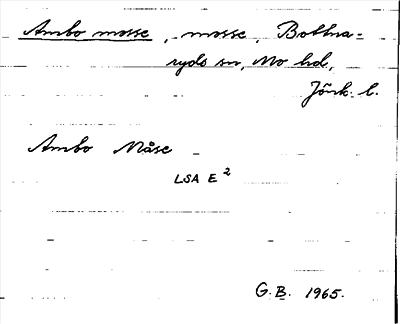 Ambo mosse, mosse, Bottna-
ryds sn, Mo hd,
Jönk. l.
Ambo Måse
LSA E2
G.B. 1965.